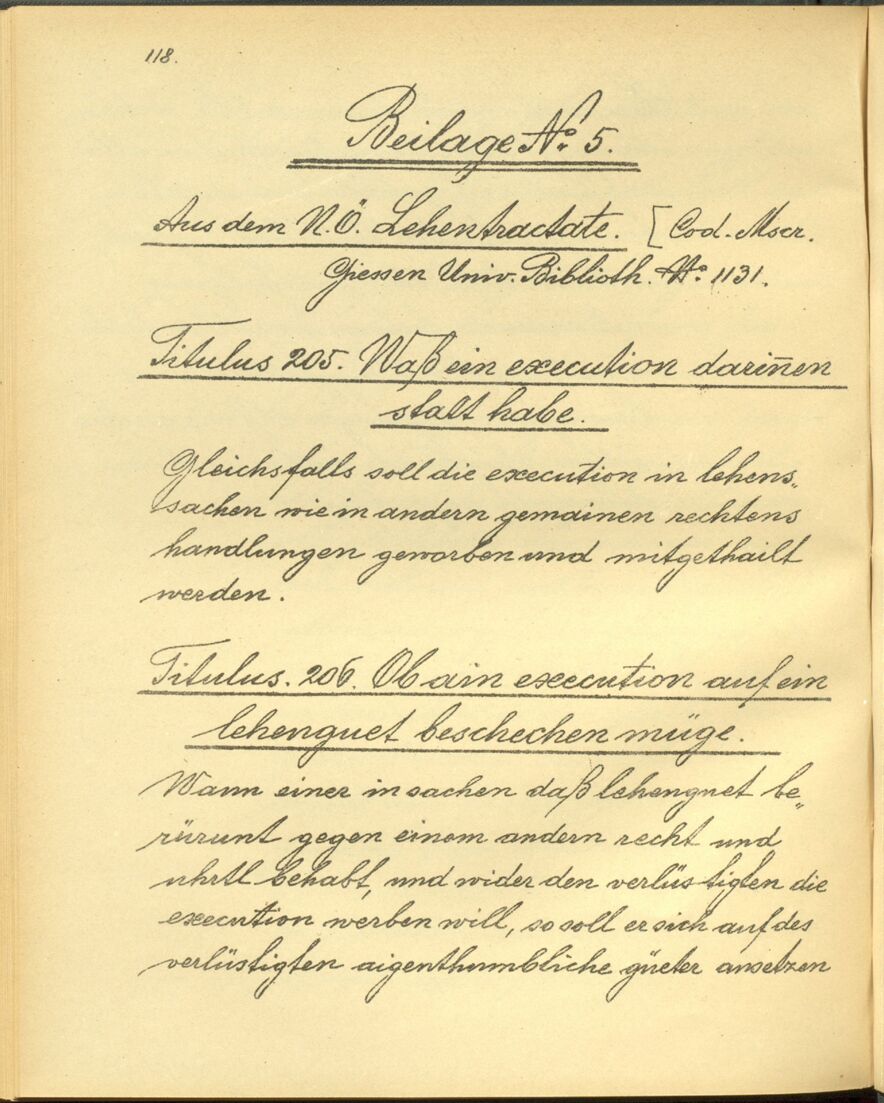 118.
Beilage No. 5.
Aus dem N.Ö. Lehentractate. [Cod. Mscr.
Giessen Univ. Biblioth. No. 1131.
Titulus 205. Waß ein execution darin̅en
statt habe.
Gleichsfalls soll die execution in lehens„
sachen wie in andern gemainen rechtens
handlungen geworben und mitgethailt
werden.
Titulus. 206. Ob ain execution auf ein
lehenguet beschechen müge.
Wann einer in sachen daß lehenguet be„
rürunt gegen einem andern recht und
uhrtl behabt, und wider den verlüstigten die
execution werben will, so soll er sich auf des
verlüstigten aigenthumbliche güeter ansetzen